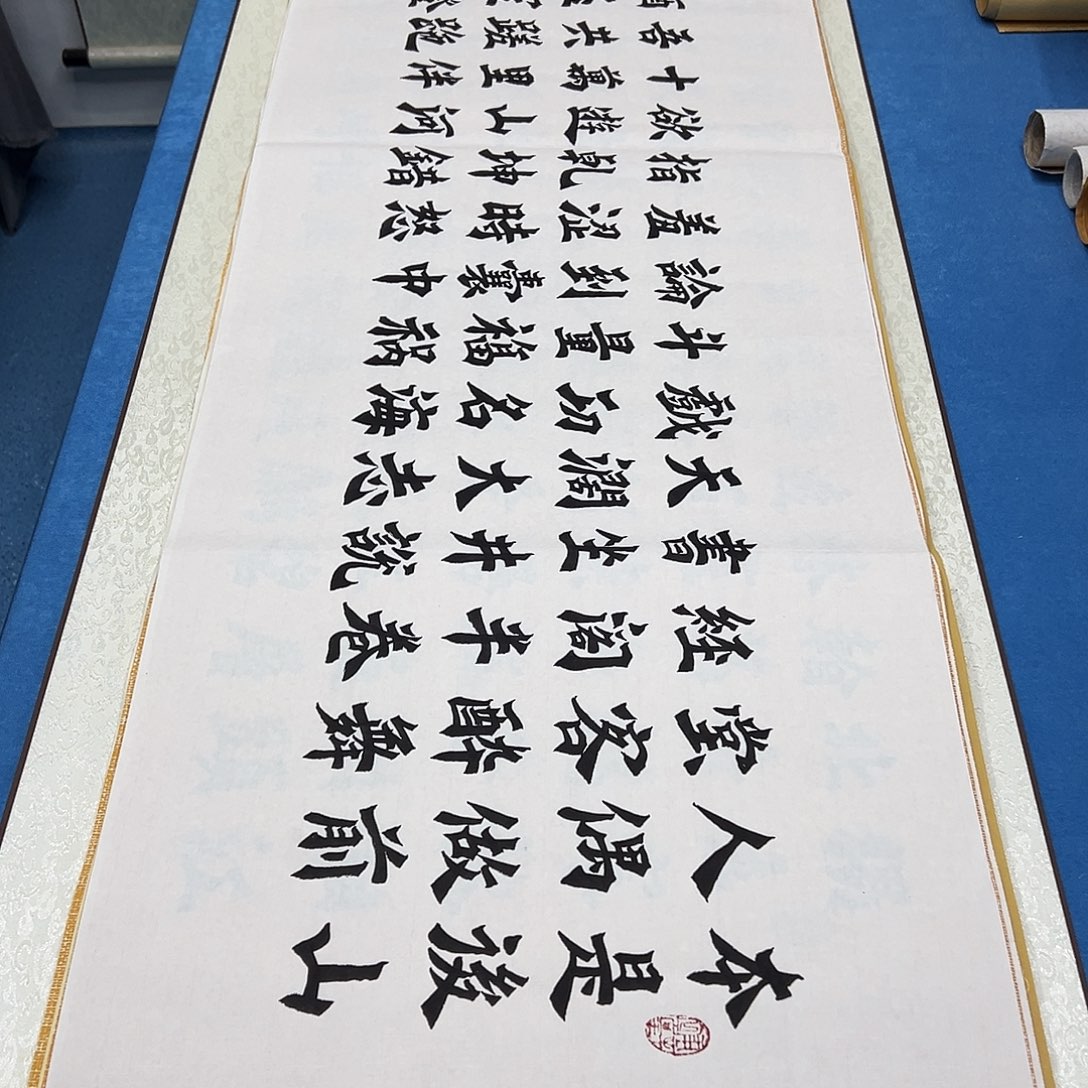 本是後山
人偶做前
堂客醉舞
經阁半卷
書坐井説
天濶大志
戲功名海
斗量福祸
論到囊中
羞涩時怒
指乾坤錯
欲遊山河
十萬里伴
吾共蹉跎